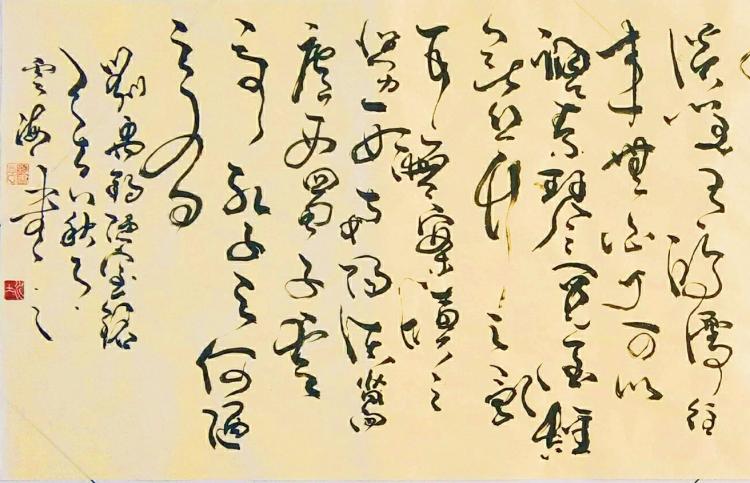 談笑有鴻儒往
來無白丁可以
調素琴閱金經
無絲竹之亂
耳無案牘之
勞形南陽諸葛
廬西蜀子雲
亭孔子云何陋
之有
劉禹錫陋室銘
秋月
雲海書